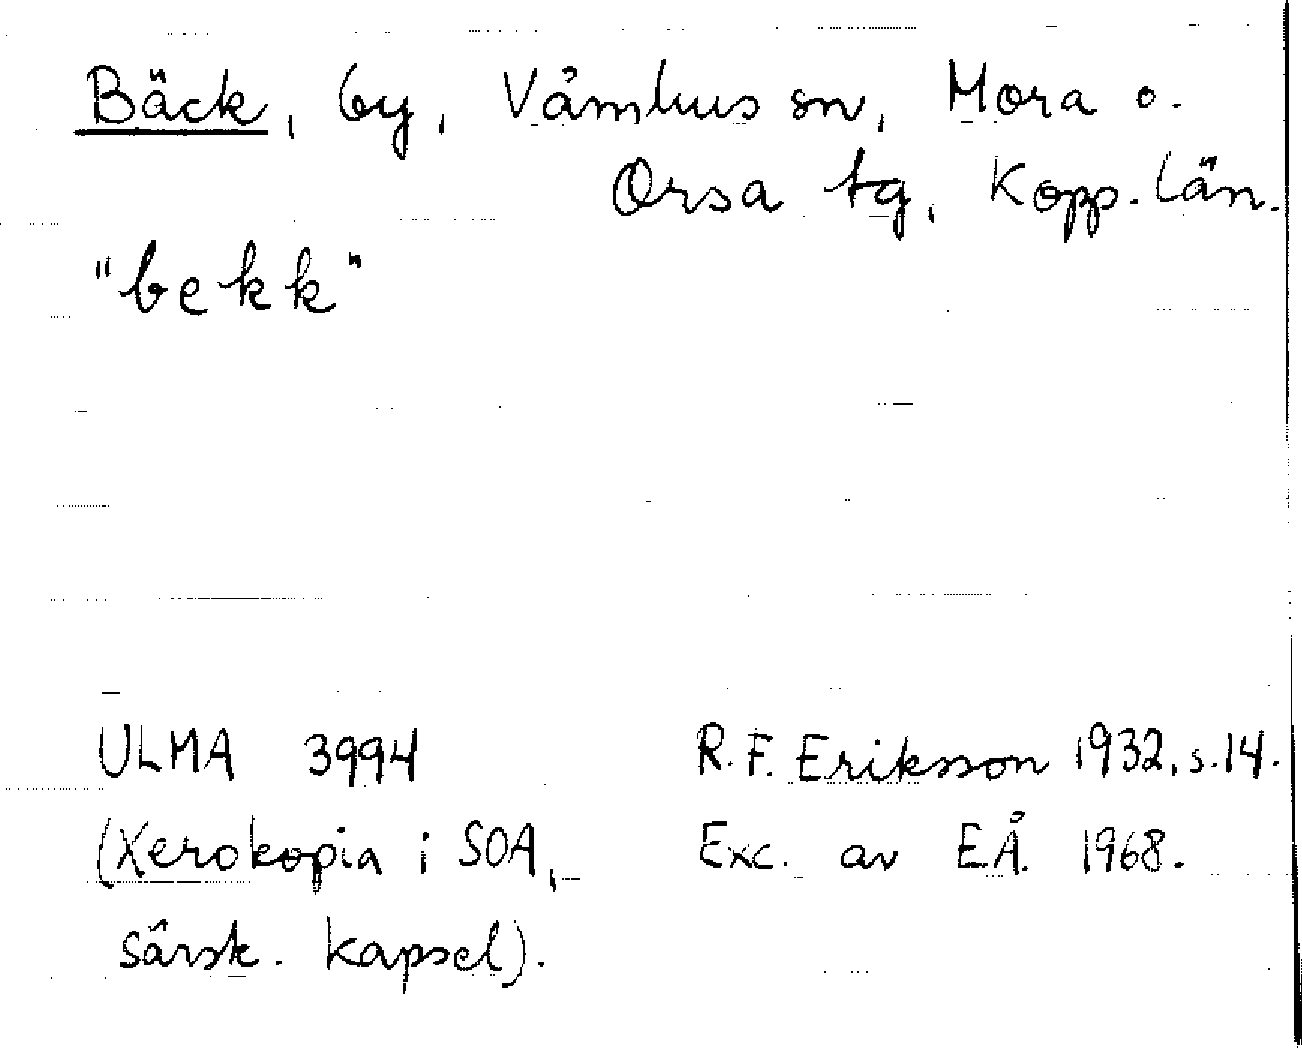 Bäck, by, Våmhus sn, Mora o.
Orsa tg, Kopp. län.
"bekk"
ULMA 3994
(Xerokopia i SOA,
särsk. kapsel).
R.F. Eriksson 1932, s.14.
Exc. av EÅ. 1968.